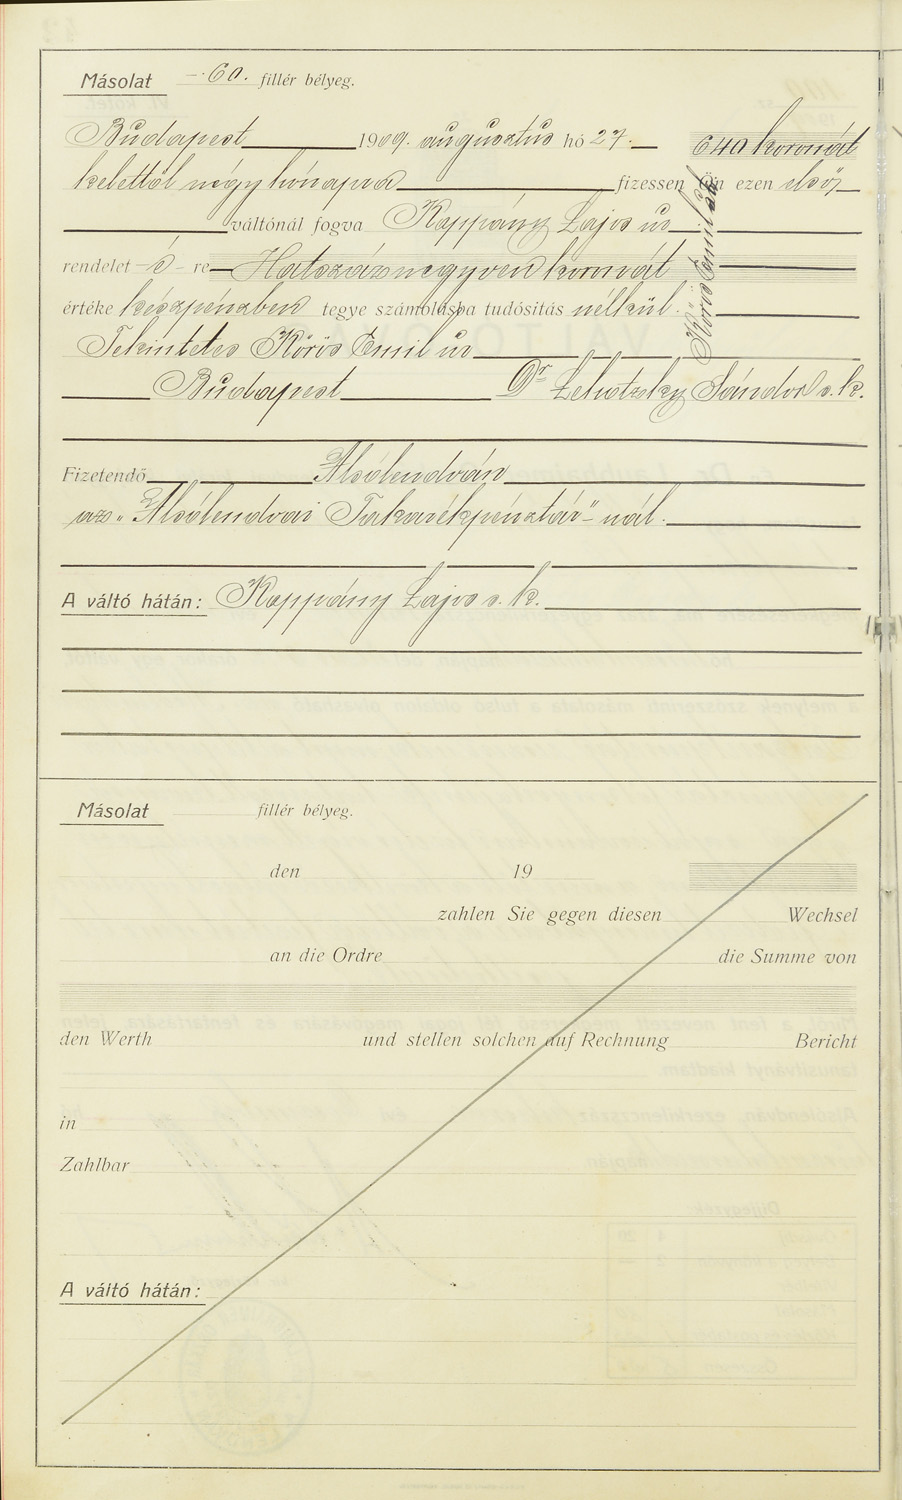 Másolat -.60. fillér bélyeg.
Budapest 1909. augusztus hó 27. 640 koronát
kelettől négy hónapra fizessen Ön ezen első
váltónál fogva Kappány Lajos úr
rendelet-é-re Hatszáznegyven koronát
értéke készpénzben tegye számolásba tudósítás nélkül.
Tekintetes Kőrös Emil úr
Budapest Dr Lehotzky Sándor s. k.
Kőrös Emil s. k.
Fizetendő Alsólendván
az „Alsólendvai Takarékpénztár"-nál.
A váltó hátán: Kappány Lajos s. k.
Másolat fillér bélyeg.
den 19
zahlen Sie gegen diesen Wechsel
an die Ordre die Summe von
den Werth und stellen solchen auf Rechnung Bericht
in
Zahlbar
A váltó hátán: